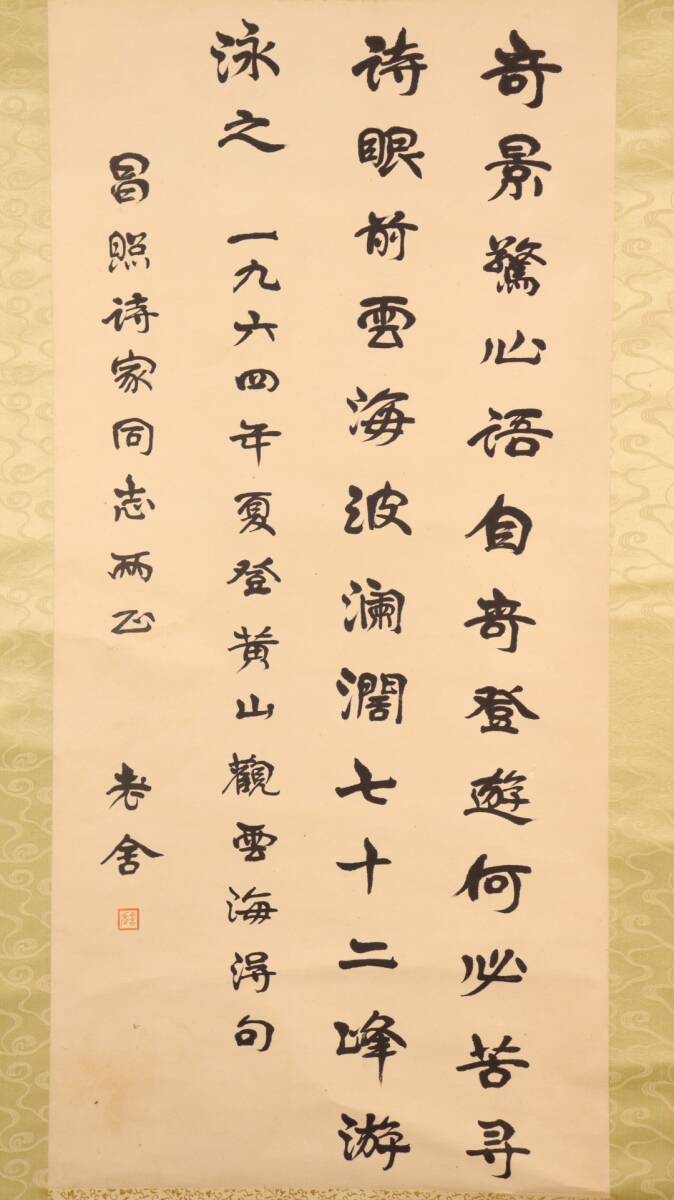 奇景驚心语自奇登遊何必苦寻
诗眼前雲海波澜濶七十二峰游
泳之 一九六四年夏登黄山觀雲海得句
冒照诗家同志两正 老舍